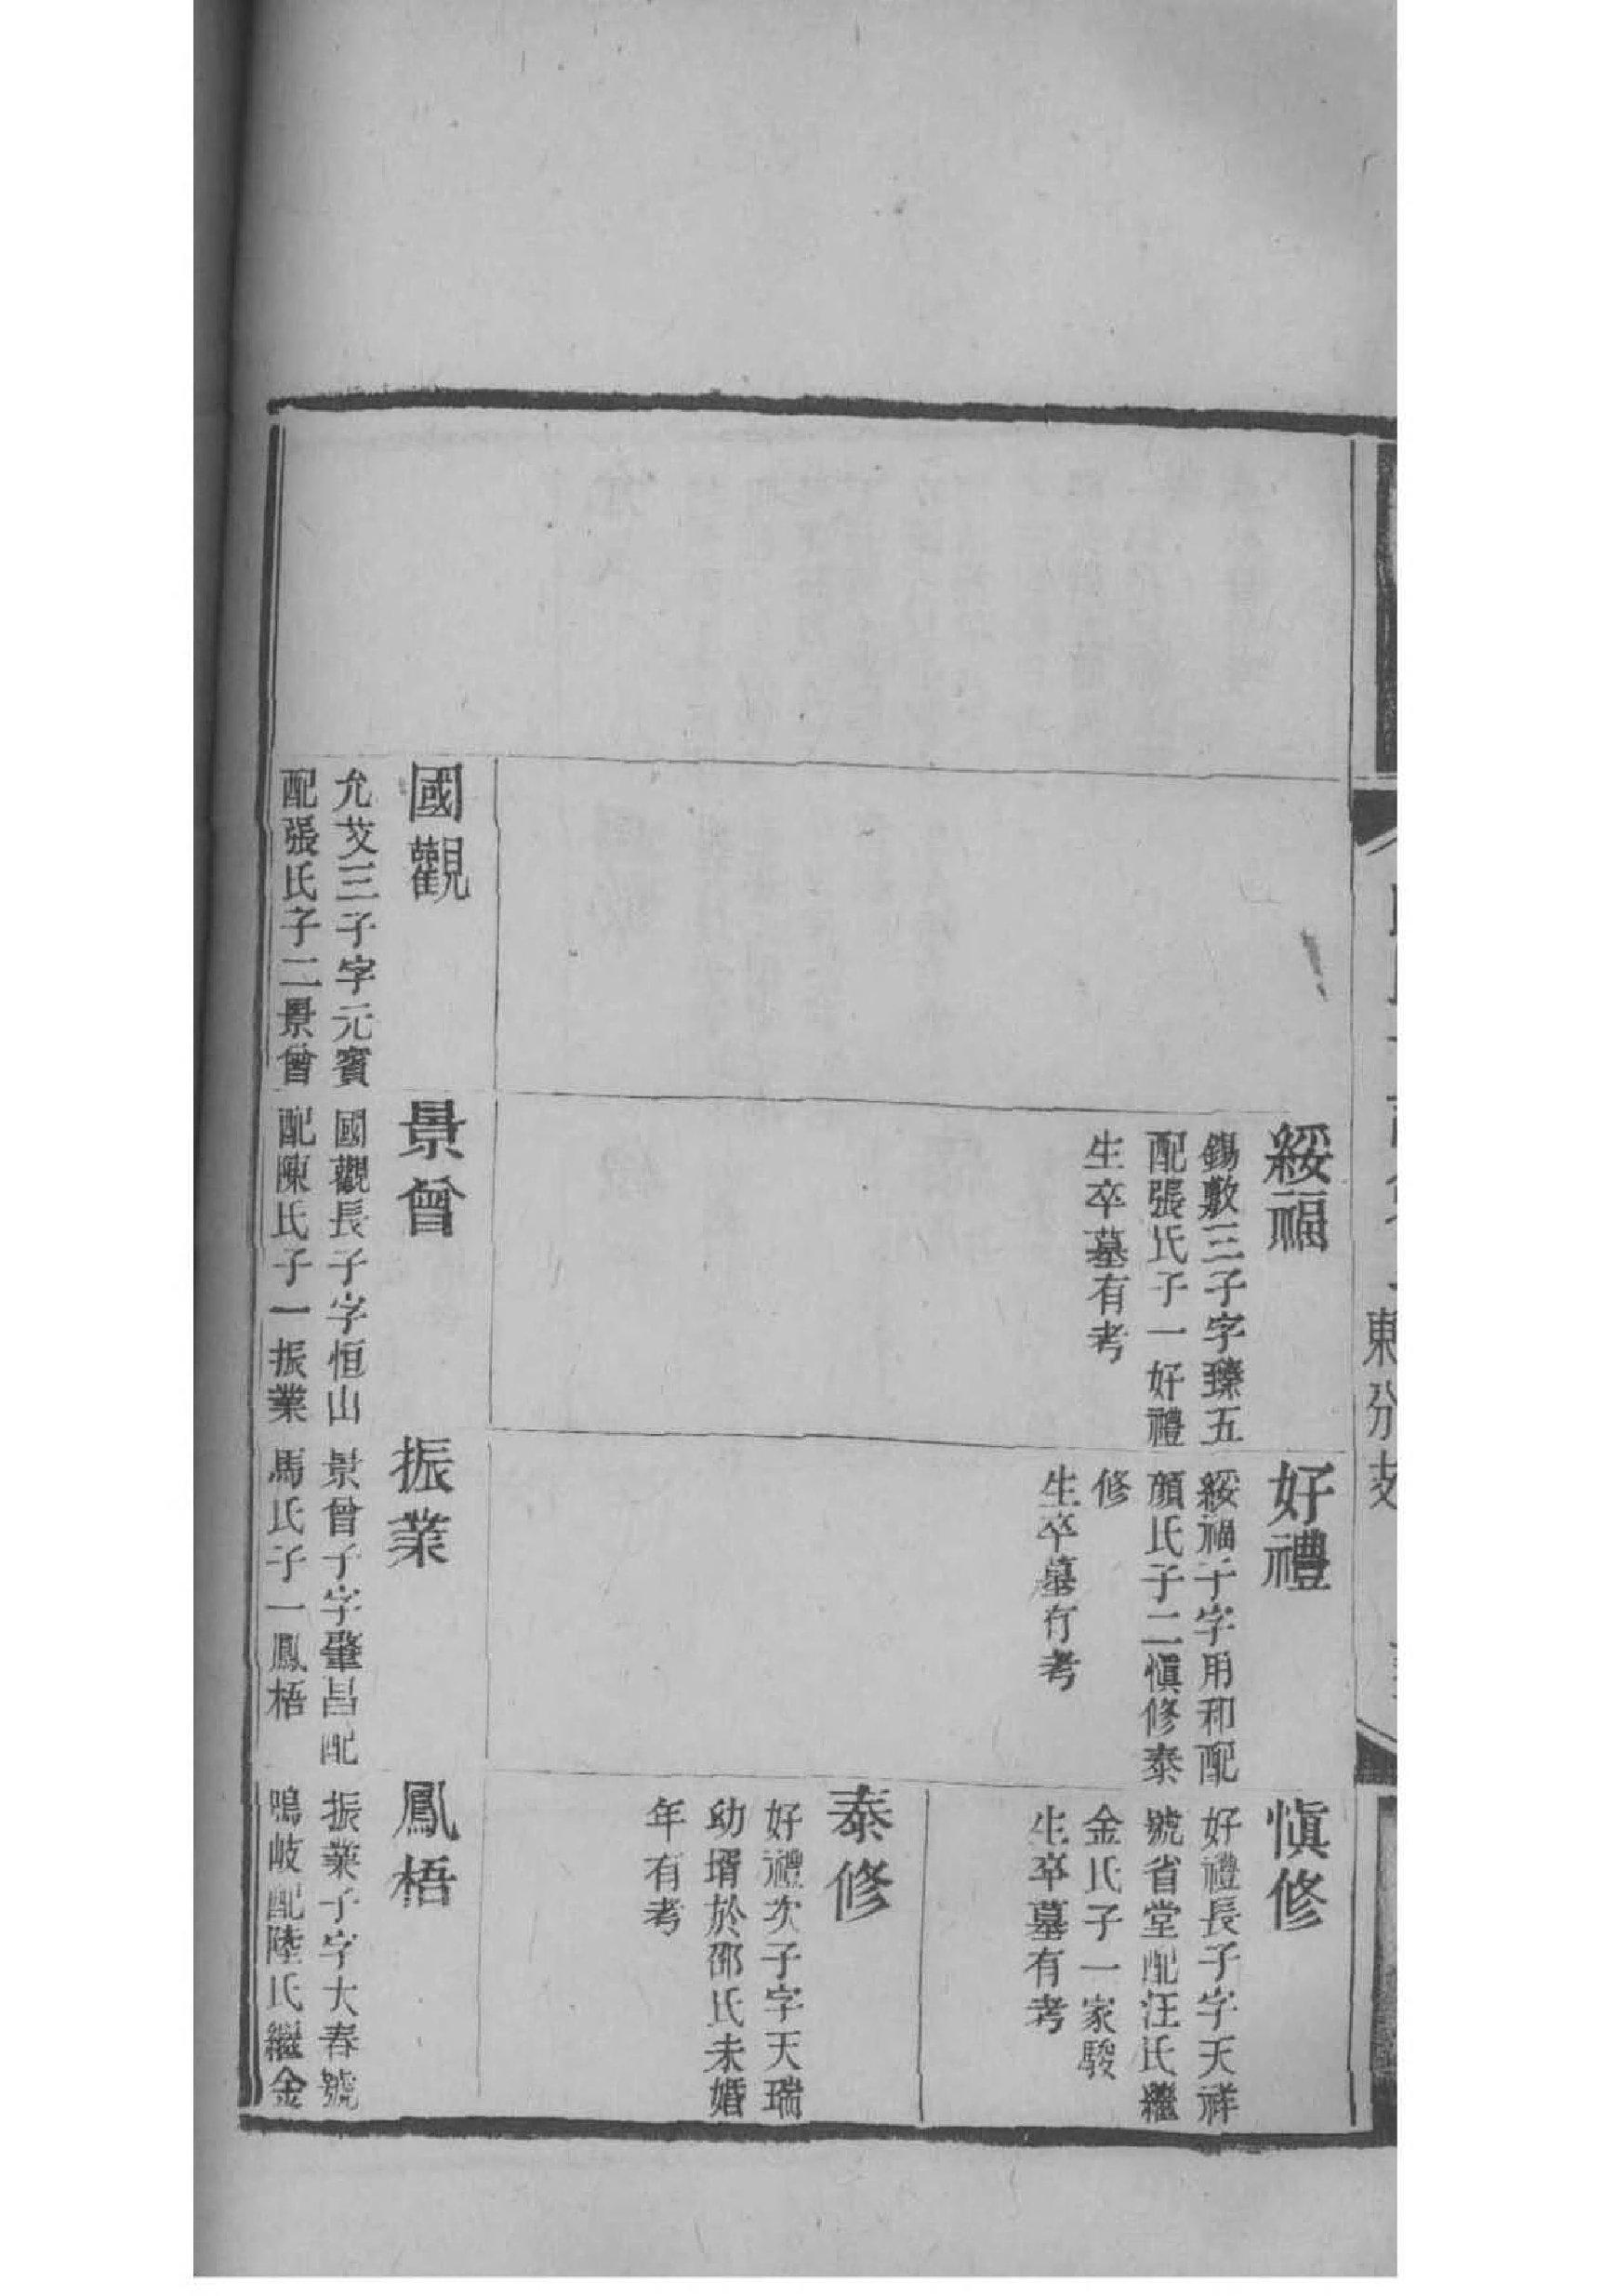 東分支
綏福
錫敷三子字臻五
配張氏子一好禮
生卒墓有考
好禮
綏福子字用和配
顏氏子二愼修泰
修
生卒墓有考
愼修
好禮長子字天祥
號省堂配汪氏繼
金氏子一家駿
生卒墓有考
泰修
好禮次子字天瑞
幼壻於邵氏未婚
年有考
國觀
允艾三子字元賓
配張氏子二景曾
景曾
國觀長子字恒山
配陳氏子一振業
振業
景曾子字肇昌配
馬氏子一鳳梧
鳳梧
振業子字大春號
鳴岐配陸氏繼金